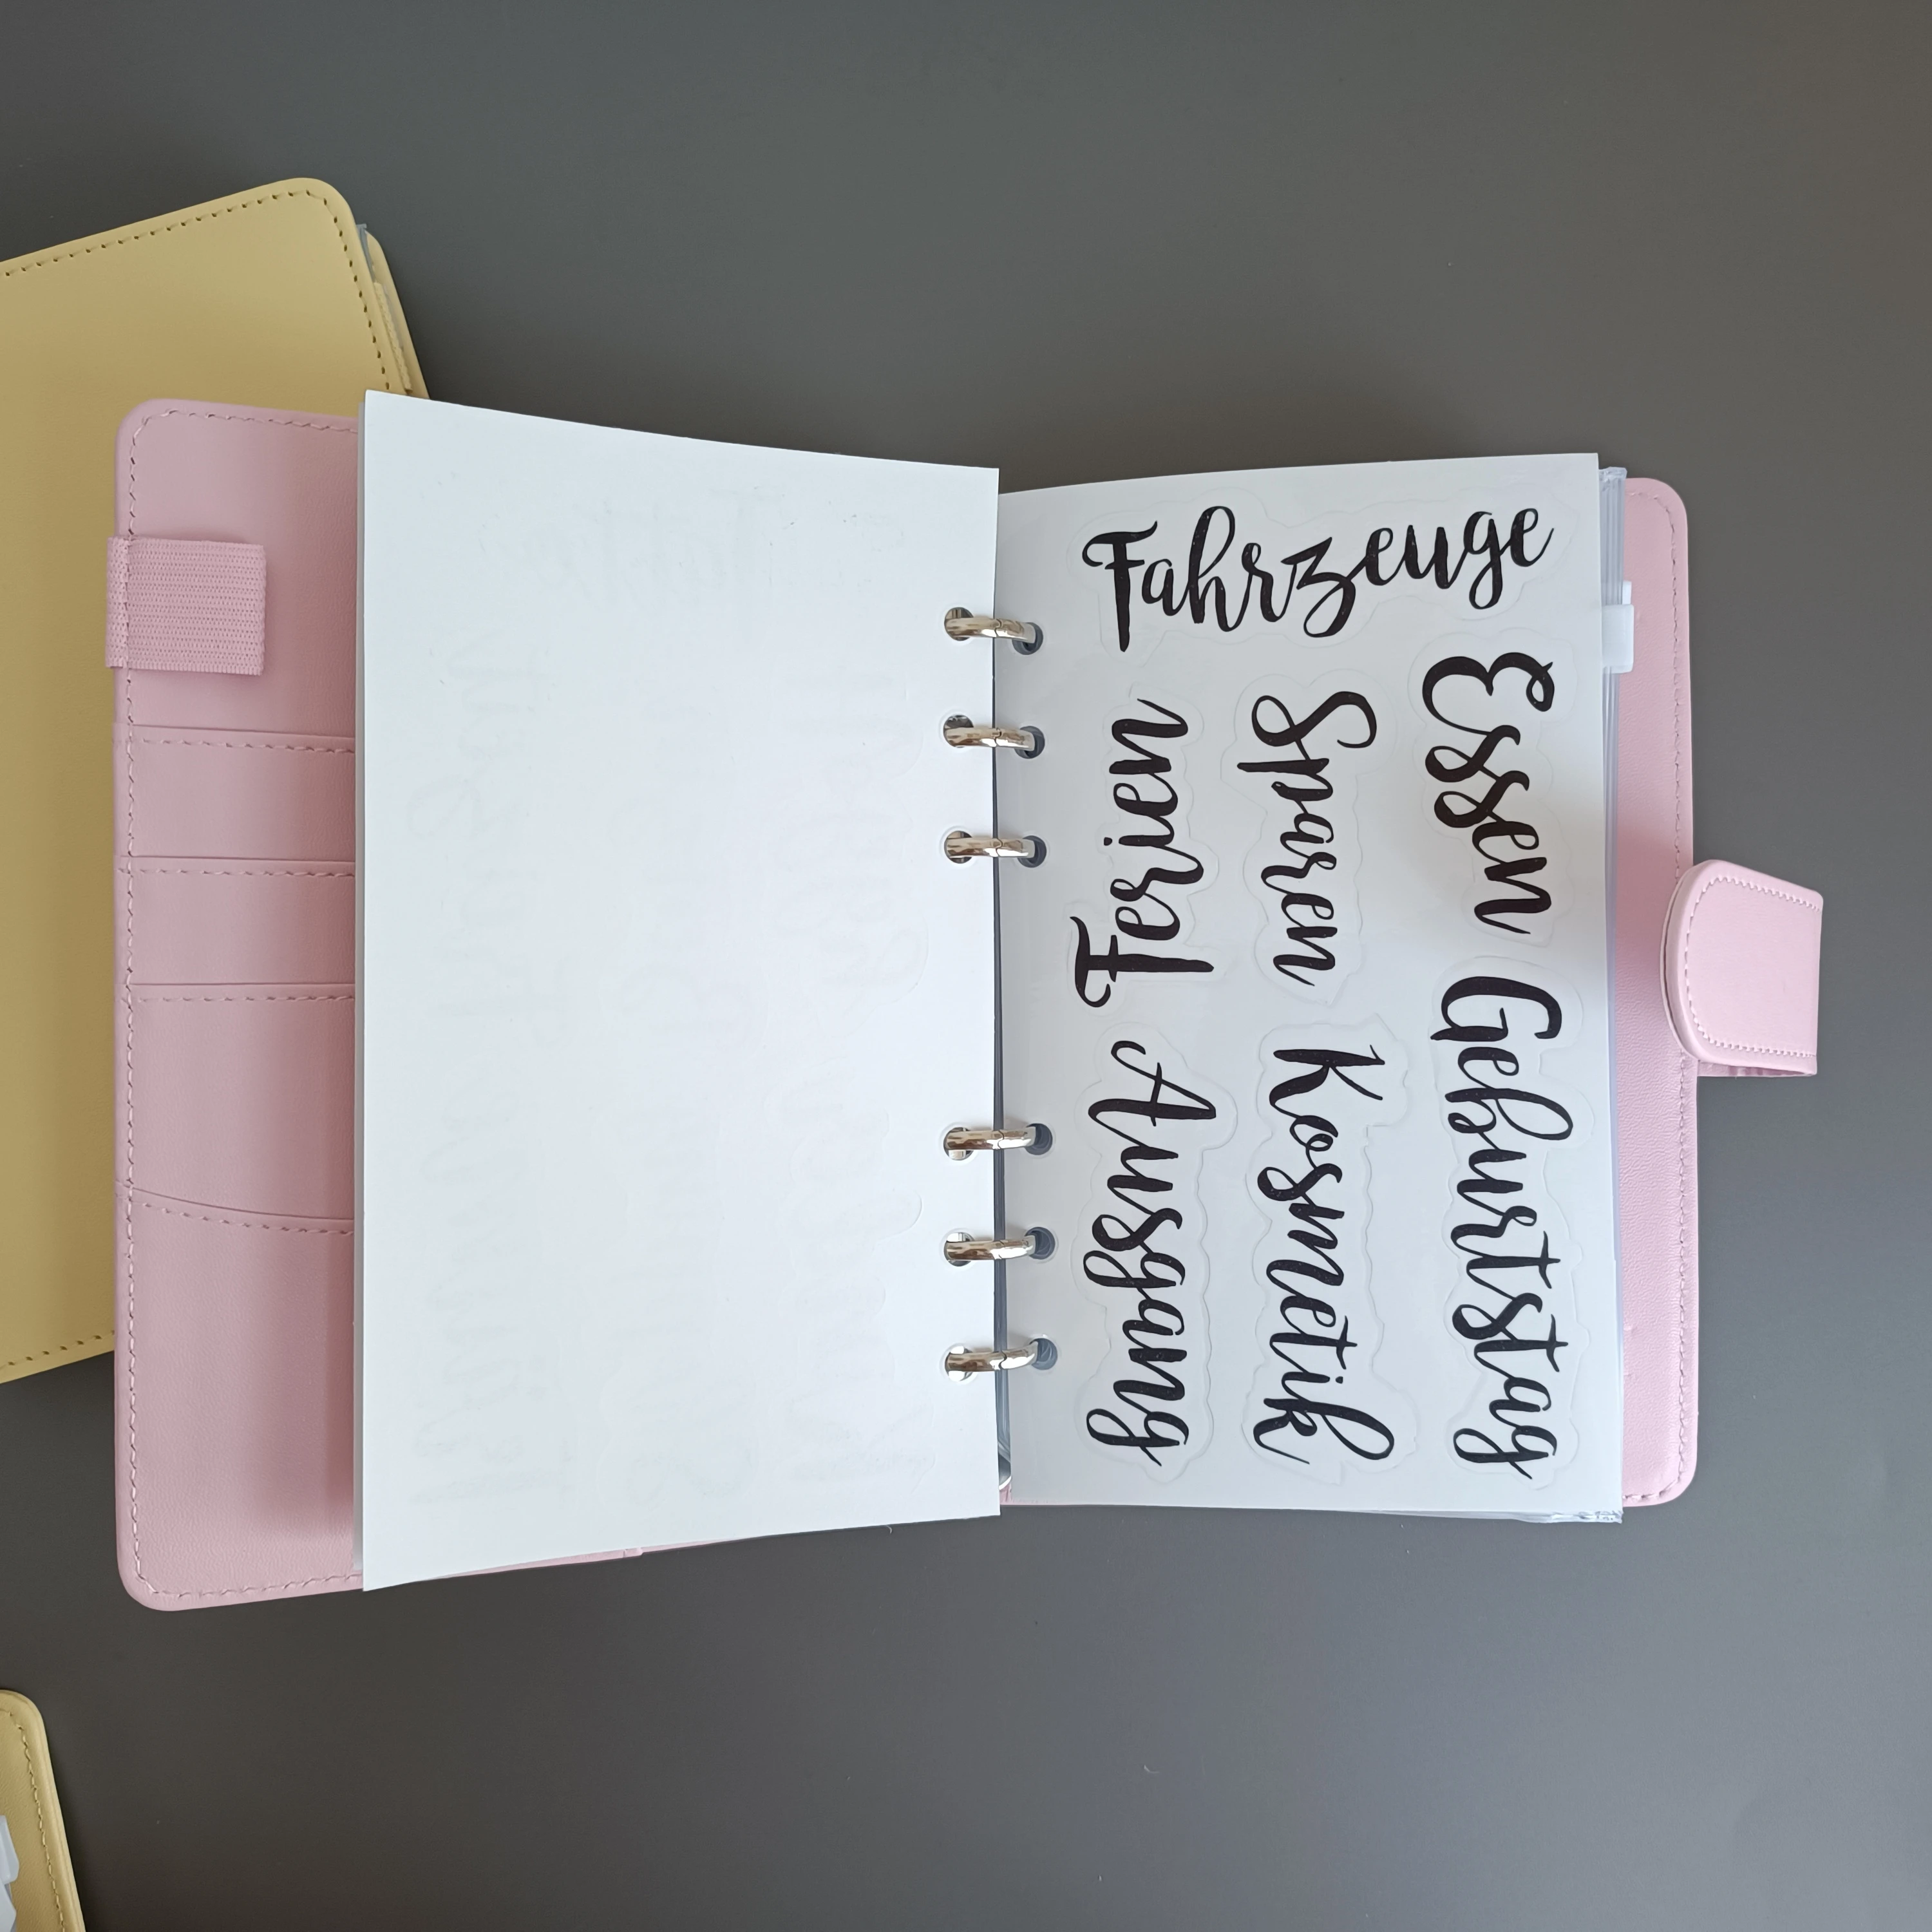 Fahrzeuge
Ferien
Sparen
Essen
Ausgang
Kosmetik
Geburtstag